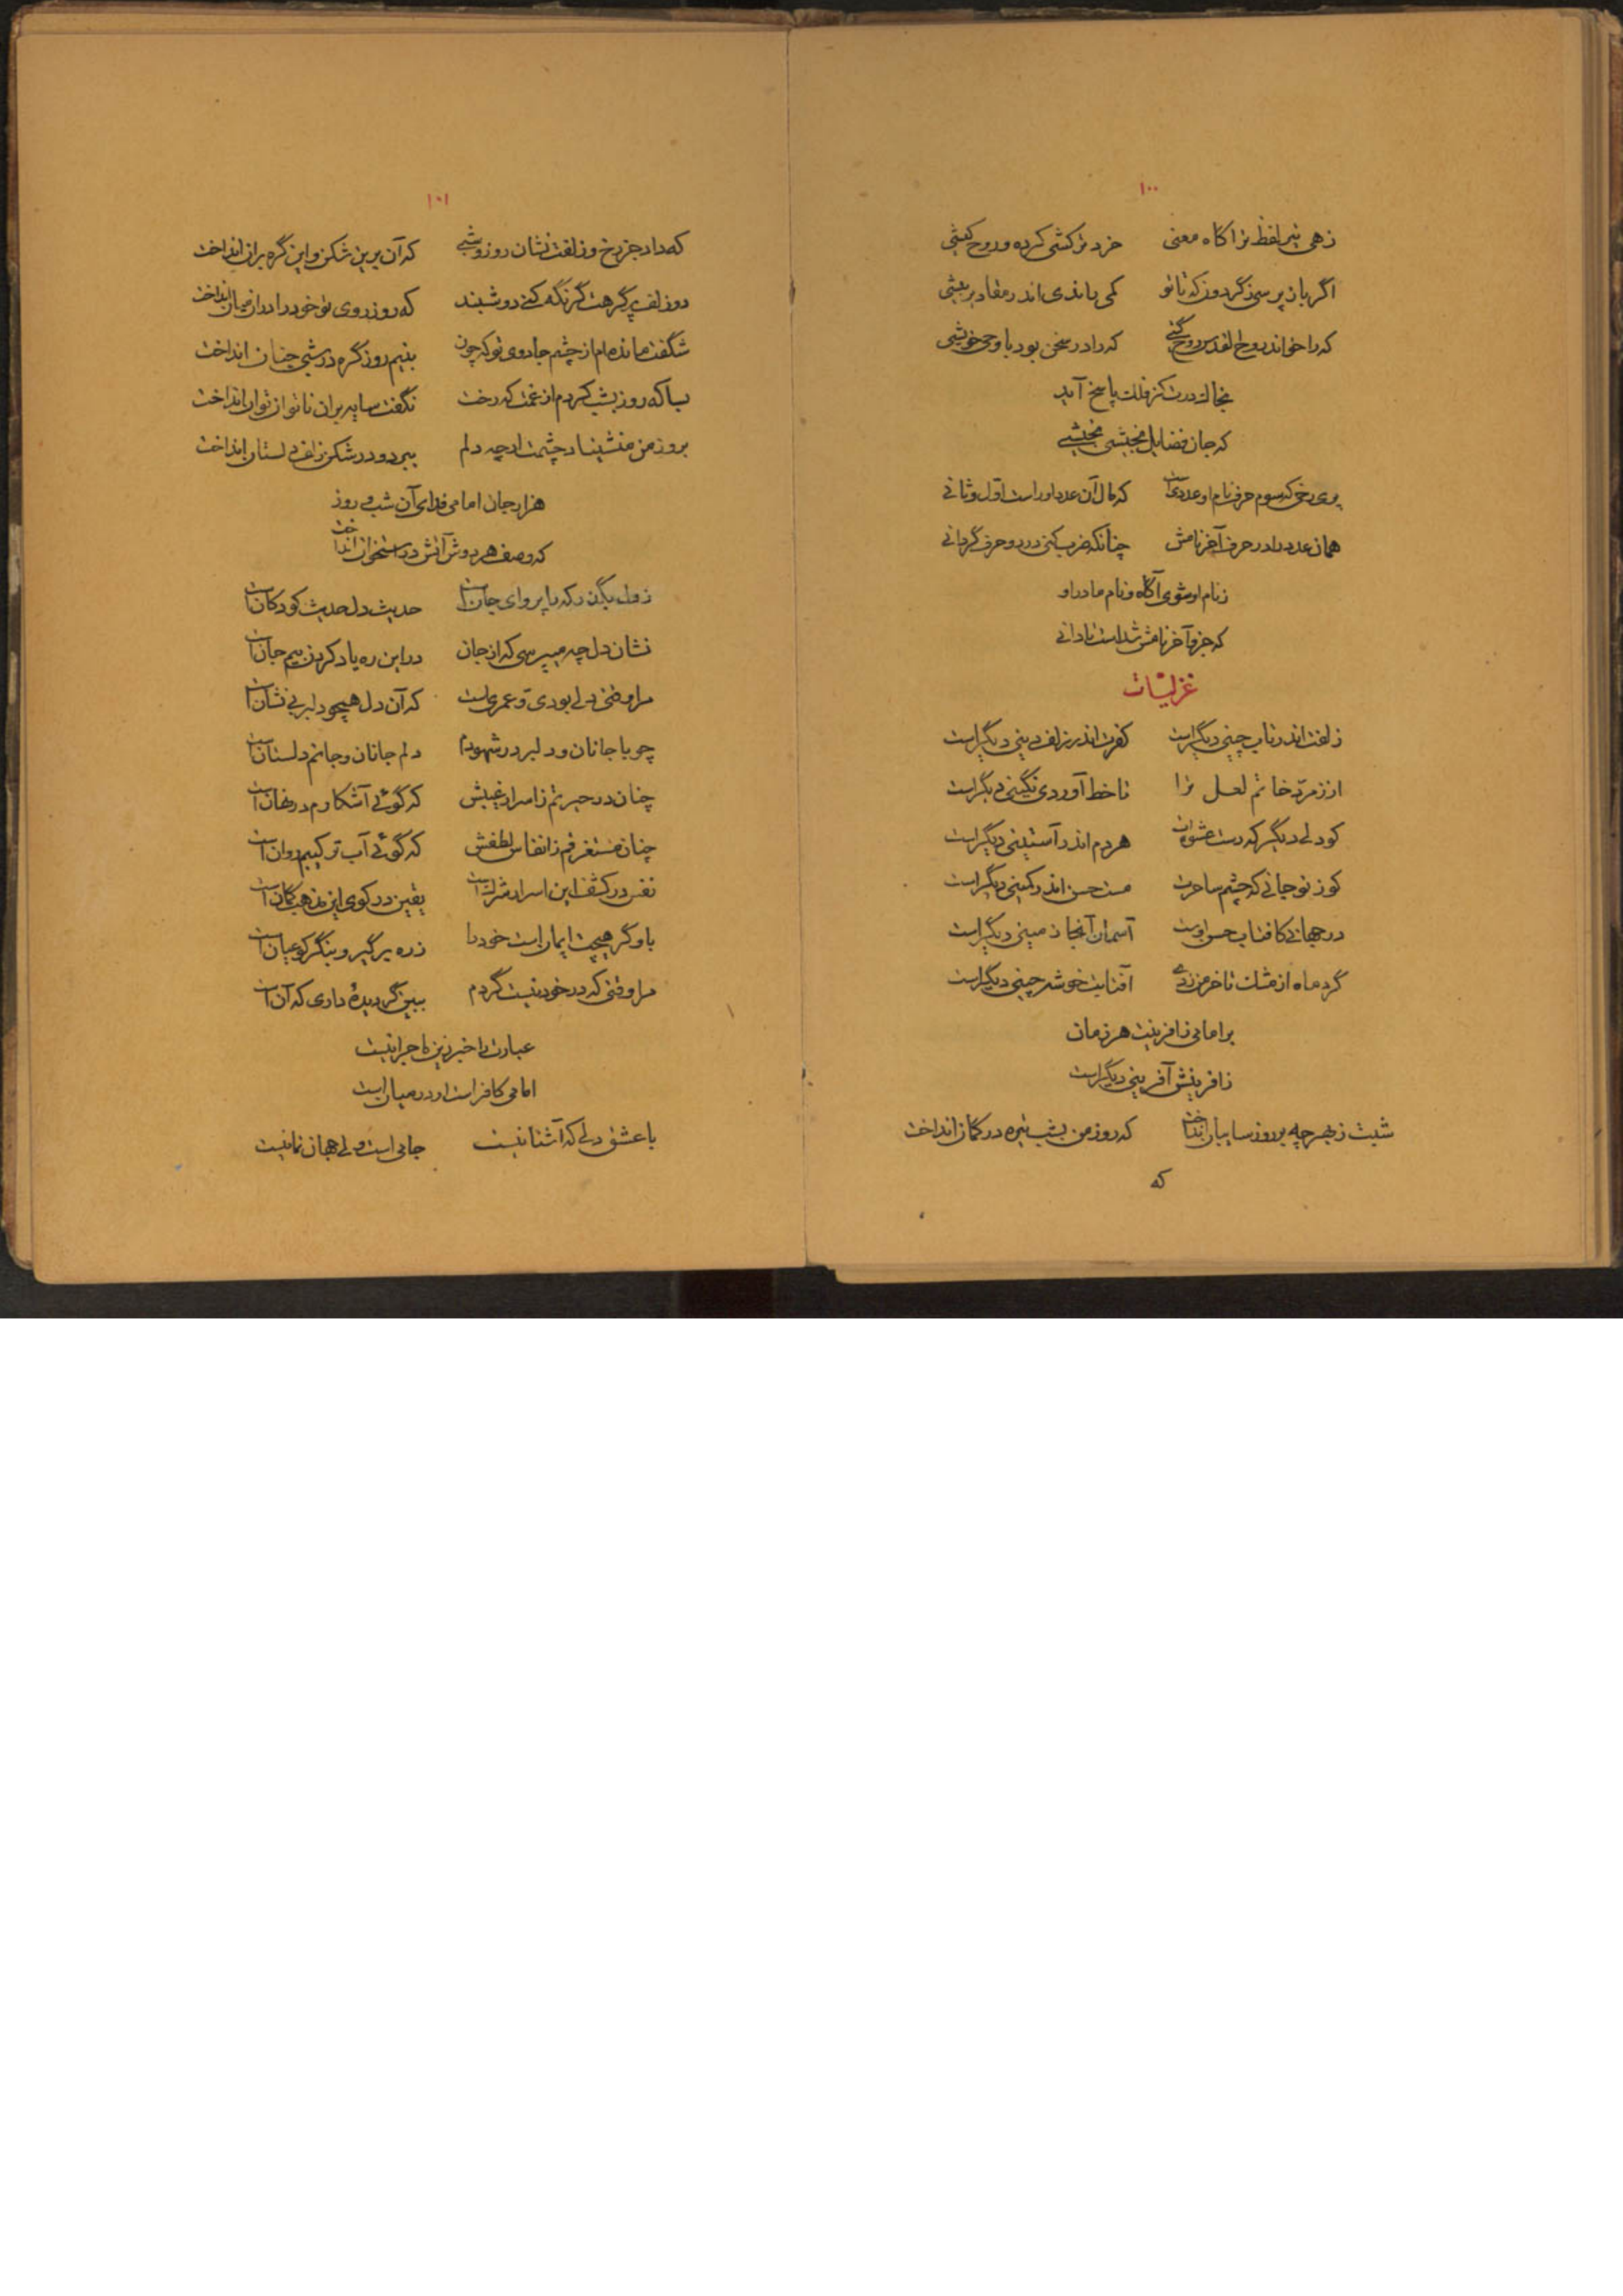 ۱۰۰
زهی تیر لفظ ترا گاه معنی خرد ترکشی کرده و روح کیشی
اگر باز پرسی ز گردون که تا تو کمی یا ندی اندر مقادیر بیشی
که را خواند روح القدس روح گنجی که را در سخن بود با وحی خویشی
بخاک درت کز فلک پاسخ آید
که جان فضایل بخبشی بخبشی
پری رخی که سوم حرف نام او عددی است که مال آن عدد او راست اول و ثانی
همان عدد را در حرف آخر نامش چنانکه ضرب کنی در دو حرف گردانی
ز نام او شوی آگاه و نام مادر او
که جزو آخر نامش شد است نادانی
غزلیات
زلفت اندر تاب چینی دیگر است کفرت اندر زلف دینی دیگر است
از زمرد خاتم لعل ترا تا خط آوردی نگینی دیگر است
کو دلی دیگر که دست عشوه‌ات هردم اندر آستینی دیگر است
کو ز نو جانی که چشم ساحرت مست حسن اندر کمینی دیگر است
در جهانی کافتاب حسن اوست آسمان آنجا زمینی دیگر است
گرد ماه از مشک تا خرمن زدی آفتابت خوشه چینی دیگر است
بر امامی ز افرینت هر زمان
ز افرینش آفرینی دیگر است
شبت ز بهر چه بر روز سایبان انداخت که روز من بشب تیره در گمان انداخت
که
۱۰۱
که داد جز رخ و زلفت نشان روز و شبی که آن برین شکن و این گره بران انداخت
دو زلف پر گرهت گر نگه کنی دو شبند که روز روی تو خود را در آن میان انداخت
شگفت مانده‌ام از چشم جادوی تو که چون بنیم روز گره در شبی چنان انداخت
بسا که روز بشب کردم از غمت که رخت نگفت سایه بران ناتوان توان انداخت
بروز من منشیناد چشمت ارچه دلم ببرد و در شکن زلف دلستان انداخت
هزار جان امامی فدای آن شب و روز
که وصف هر دوش آتش در استخوان انداخت
ز دل بگذر که با پروای جان است حدیث دل حدیث کودکان است
نشان دل چه میپرسی که از جان در این ره یاد کردن بیم جان است
مرا وقتی دلی بودی و عمریست که آن دل همچو دلبر بی نشان است
چو با جانان و دلبر در شهودم دلم جانان و جانم دلستان است
چنان در حیرتم ز اسرار غیبش که گوئی آشکارم در نهان است
چنان مستغرقم ز انفاس لطفش که گوئی آب ترکیبم روان است
نفس در کشف این اسرار شرک است یقین در کوی این مذهب گمان است
باو گر هیچت ایمان است خود را ز ره برگیر و بنگر کو عیان است
مرا وقتی که در خود نیست گردم ببین گر دیدهٔ داری که آن است
عبارت را خبر زین ماجرا نیست
امامی کافر است او در میان است
با عشق دلی که آشنا نیست جامی است ولی جهان نما نیست